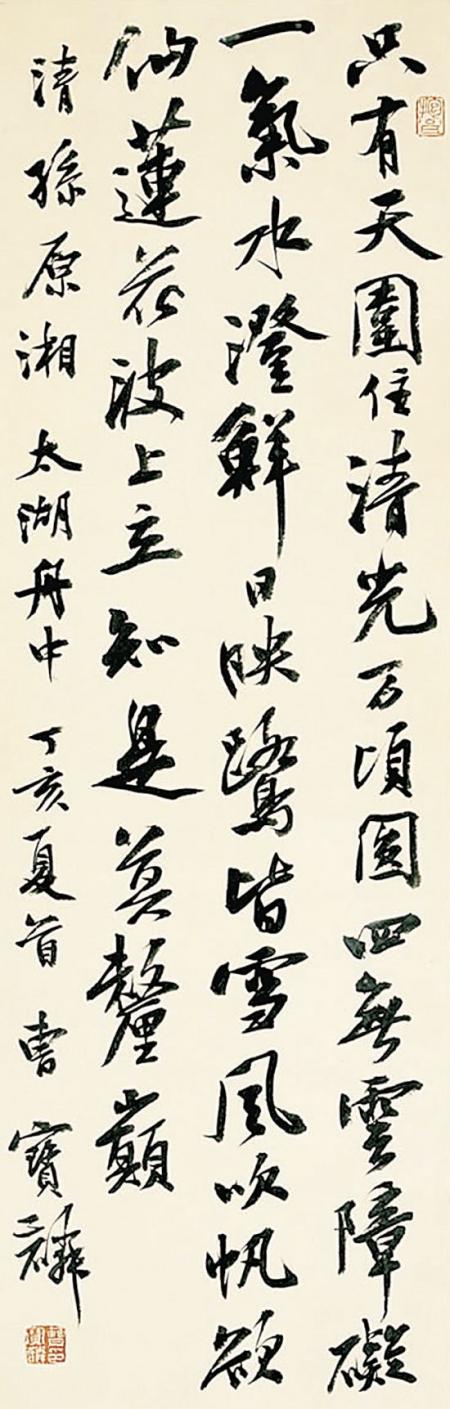 只有天圍住清光万頃圆四無雲障礙
一氣水澄鮮日映鷺皆雪風吹帆欲
仙蓮花波上立知是莫釐巔
清孫原湘太湖舟中丁亥夏首曹寶麟